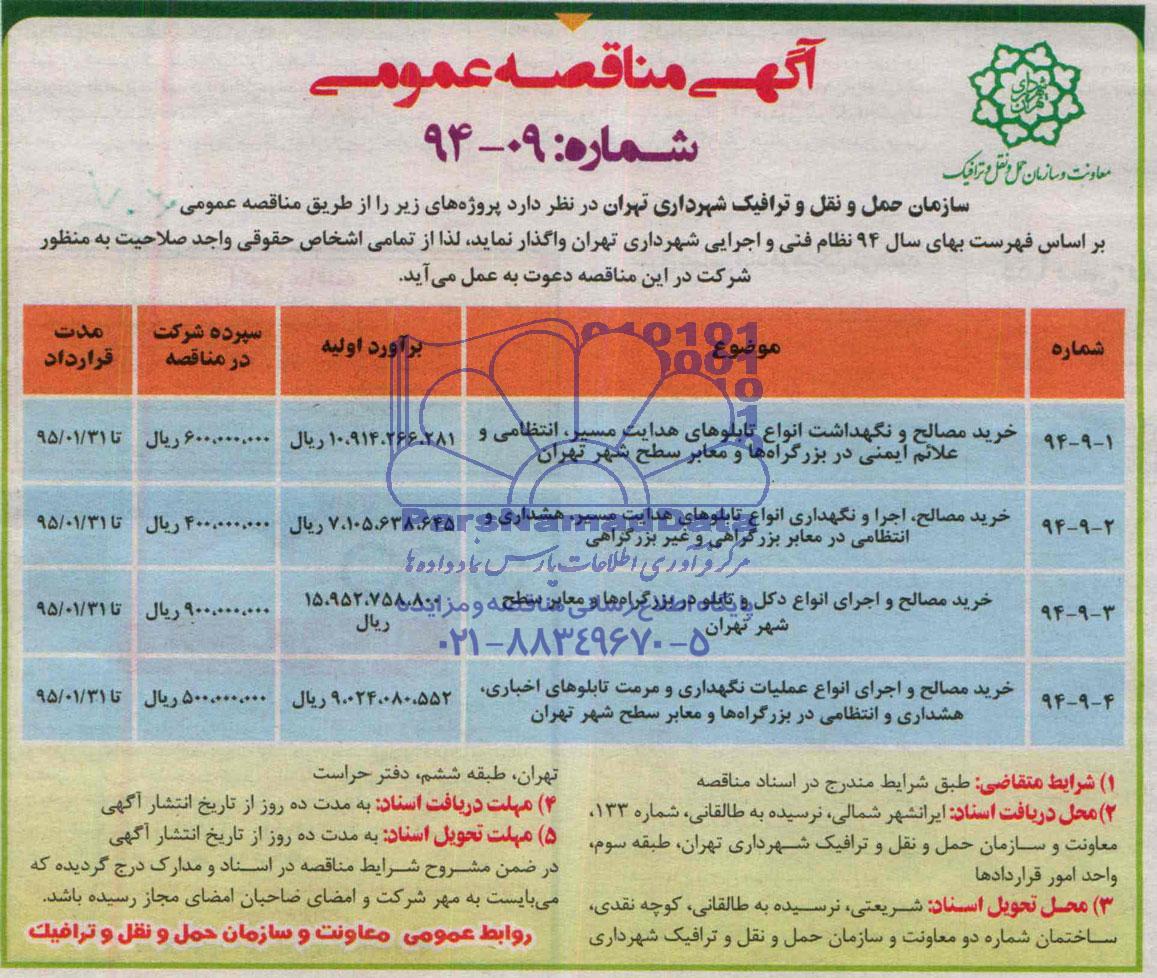 آگهی مناقصه عمومی
شماره: ۰۹-۹۴
شهرداری تهران
معاونت و سازمان حمل و نقل و ترافیک
سازمان حمل و نقل و ترافیک شهرداری تهران در نظر دارد پروژه‌های زیر را از طریق مناقصه عمومی
بر اساس فهرست بهای سال ۹۴ نظام فنی و اجرایی شهرداری تهران واگذار نماید، لذا از تمامی اشخاص حقوقی واجد صلاحیت به منظور
شرکت در این مناقصه دعوت به عمل می‌آید.
شماره موضوع برآورد اولیه سپرده شرکت در مناقصه مدت قرارداد
۹۴-۹-۱ خرید مصالح و نگهداشت انواع تابلوهای هدایت مسیر، انتظامی و ۱۰،۹۱۴،۲۶۶،۲۸۱ ریال ۶۰۰،۰۰۰،۰۰۰ ریال تا ۹۵/۰۱/۳۱
علائم ایمنی در بزرگراه‌ها و معابر سطح شهر تهران
۹۴-۹-۲ خرید مصالح، اجرا و نگهداری انواع تابلوهای هدایت مسیر، هشداری و ۷،۱۰۵،۶۳۸،۶۴۵ ریال ۴۰۰،۰۰۰،۰۰۰ ریال تا ۹۵/۰۱/۳۱
انتظامی در معابر بزرگراهی و غیر بزرگراهی
۹۴-۹-۳ خرید مصالح و اجرای انواع دکل و تابلو در بزرگراه‌ها و معابر سطح ۱۵،۹۵۲،۷۵۸،۸۰۰ ۹۰۰،۰۰۰،۰۰۰ ریال تا ۹۵/۰۱/۳۱
شهر تهران ریال
۹۴-۹-۴ خرید مصالح و اجرای انواع عملیات نگهداری و مرمت تابلوهای اخباری، ۹،۰۲۴،۰۸۰،۵۵۲ ریال ۵۰۰،۰۰۰،۰۰۰ ریال تا ۹۵/۰۱/۳۱
هشداری و انتظامی در بزرگراه‌ها و معابر سطح شهر تهران
ParsNamadData
مرکز فرآوری اطلاعات پارس نماد داده‌ها
پایگاه اطلاع رسانی مناقصه و مزایده
۰۲۱-۸۸۳۴۹۶۷۰-۵
۱) شرایط متقاضی: طبق شرایط مندرج در اسناد مناقصه
۲) محل دریافت اسناد: ایرانشهر شمالی، نرسیده به طالقانی، شماره ۱۳۳،
معاونت و سازمان حمل و نقل و ترافیک شهرداری تهران، طبقه سوم،
واحد امور قراردادها
۳) محل تحویل اسناد: شریعتی، نرسیده به طالقانی، کوچه نقدی،
ساختمان شماره دو معاونت و سازمان حمل و نقل و ترافیک شهرداری
تهران، طبقه ششم، دفتر حراست
۴) مهلت دریافت اسناد: به مدت ده روز از تاریخ انتشار آگهی
۵) مهلت تحویل اسناد: به مدت ده روز از تاریخ انتشار آگهی
در ضمن مشروح شرایط مناقصه در اسناد و مدارک درج گردیده که
می‌بایست به مهر شرکت و امضای صاحبان امضای مجاز رسیده باشد.
روابط عمومی معاونت و سازمان حمل و نقل و ترافیک